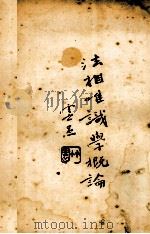 法相唯識學概論
www.mtoou.info